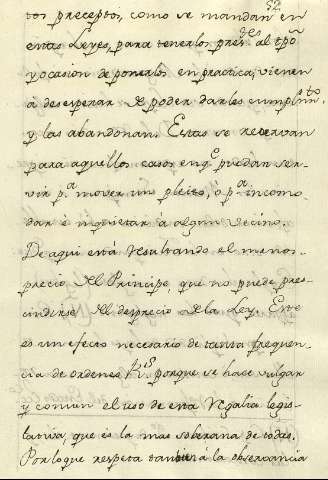 52
tos preceptos, como se mandan en
estas Leyes, para tenerlos pres.tes al tpõ
y ocasion de ponerlos en practica, vienen
á desesperar de poder darles cumplim.to
y las abandonan. Estas se reservan
para aquellos casos en q.e puedan ser-
vir p.a mover un pleito, o p.a incomo-
dar é inquietar á algun vecino.
De aqui está resultando el menos-
precio del Principe, que no puede pres-
cindirse del desprecio de la Ley. Este
es un efecto necesario de tanta frequen-
cia de ordenes R.s porque se hace vulgar
y comun el uso de esta Regalia legis-
lativa, que es la mas soberana de todas.
Por lo que respeta tambien á la observancia